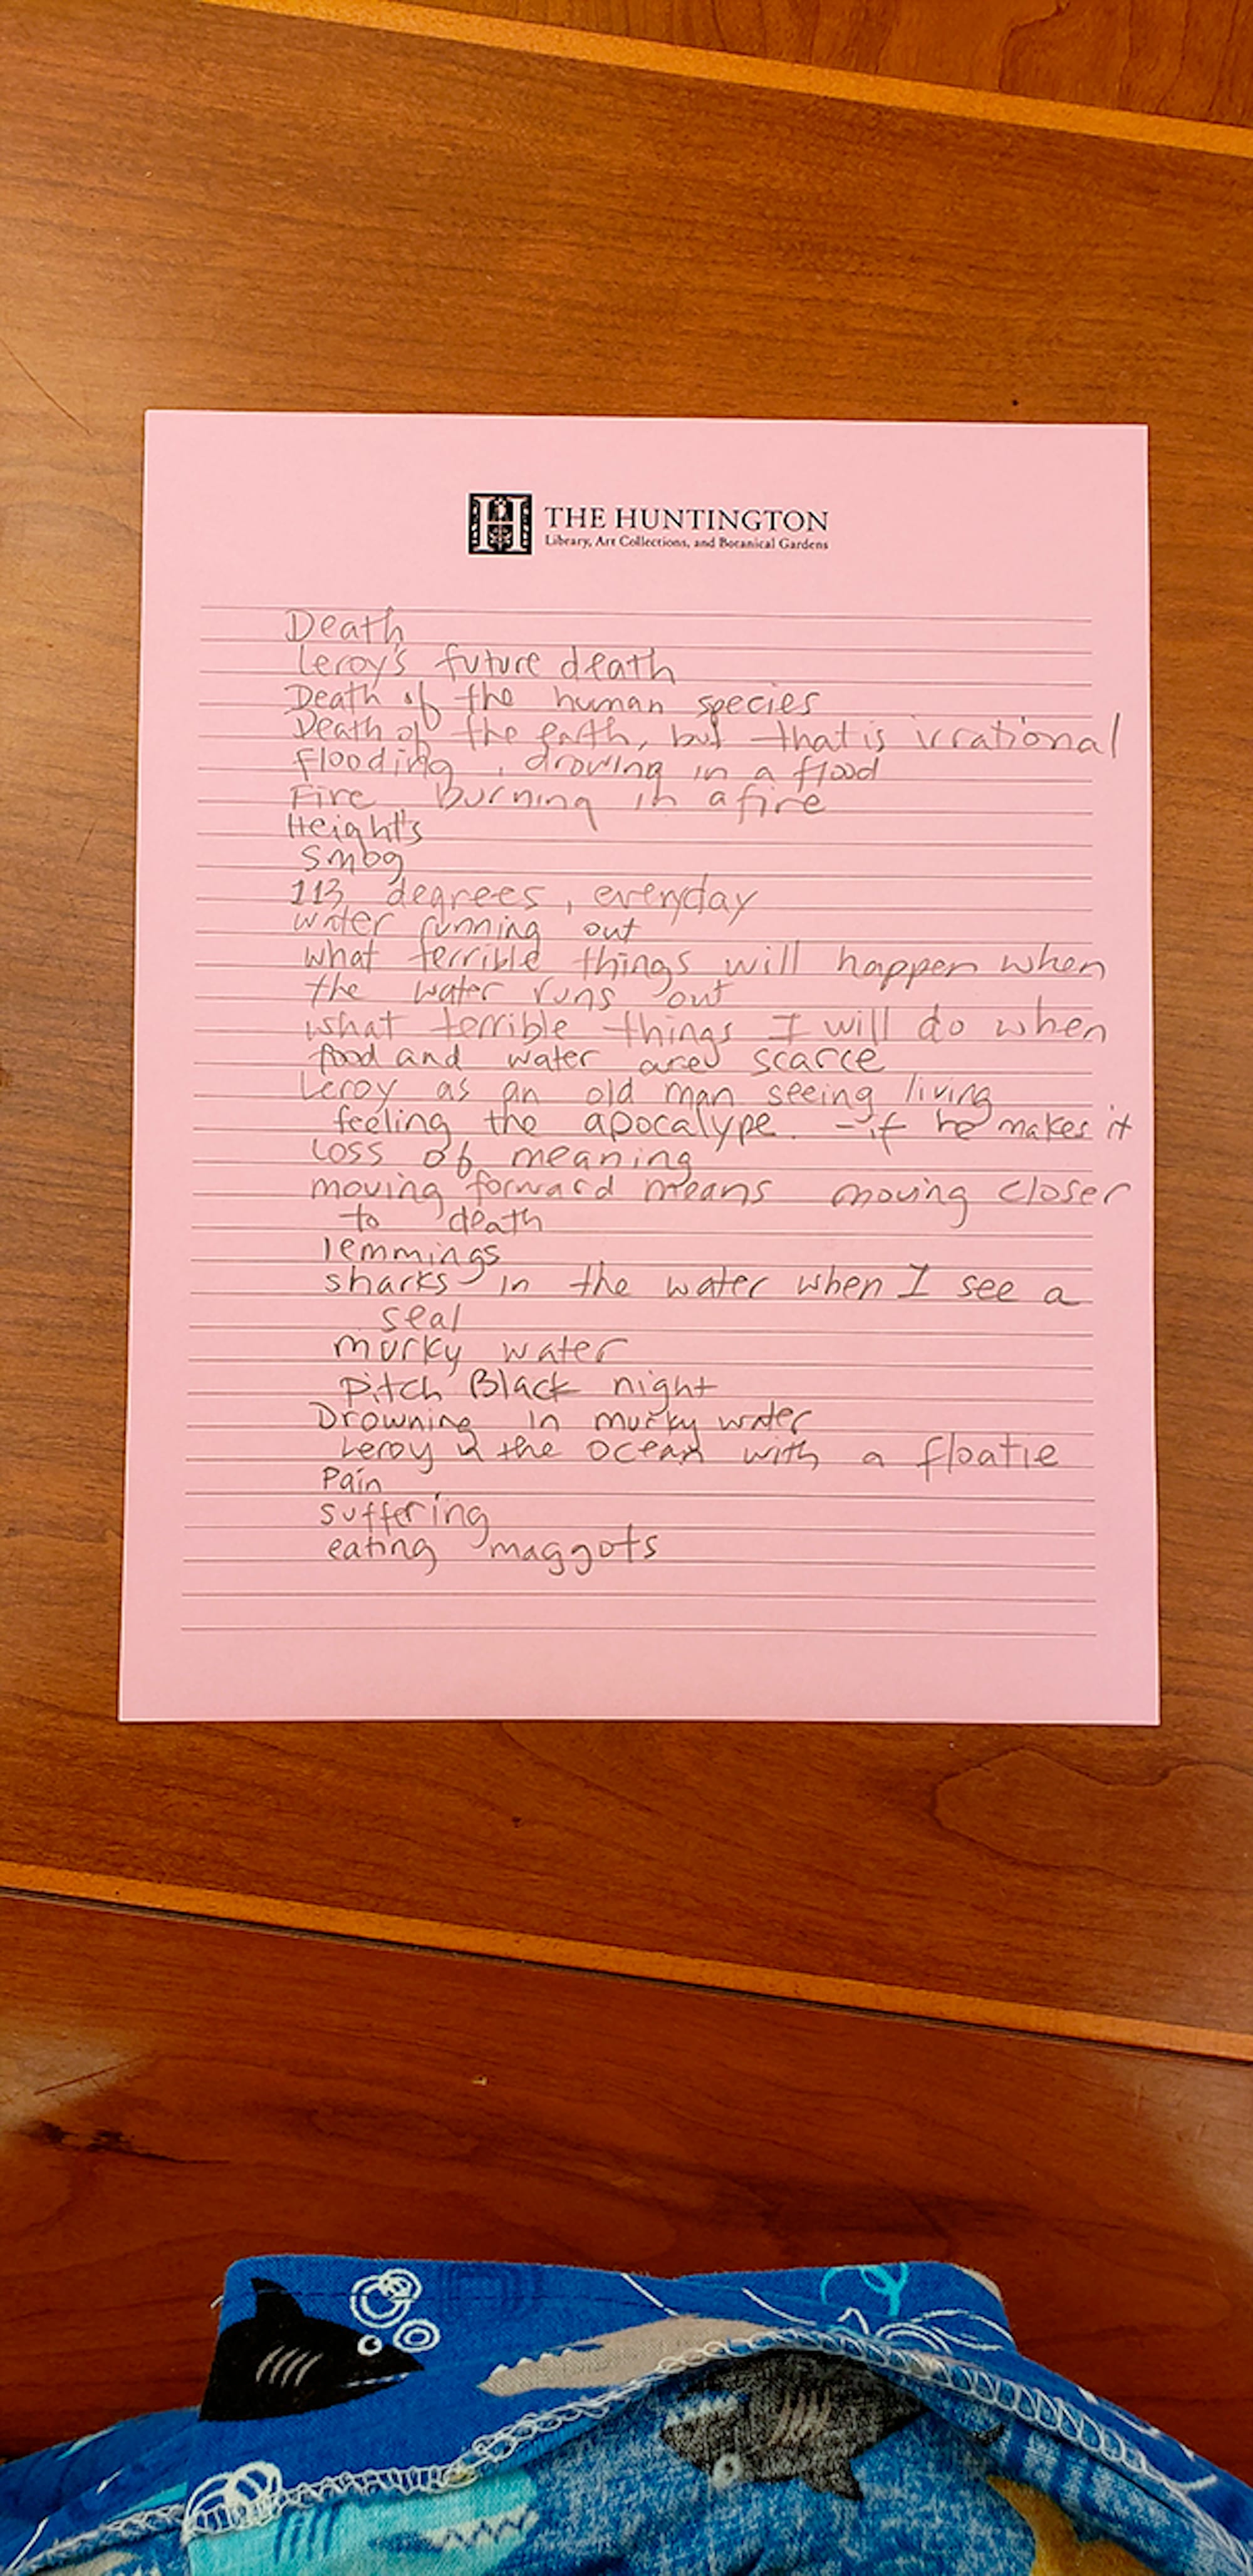 H THE HUNTINGTON
Library, Art Collections, and Botanical Gardens
Death
Leroy's future death
Death of the human species
Death of the earth, but that is irrational
Flooding, drowing in a flood
Fire, burning in a fire
Height's
smog
113 degrees, everyday
water running out
what terrible things will happen when
the water runs out
what terrible things I will do when
food and water are scarce
Leroy as an old man seeing living
feeling the apocalype. - if he makes it
Loss of meaning
moving forward means moving closer
to death
lemmings
sharks in the water when I see a
seal
murky water
Pitch Black night
Drowning in murky water
Leroy in the ocean with a floatie
Pain
suffering
eating maggots